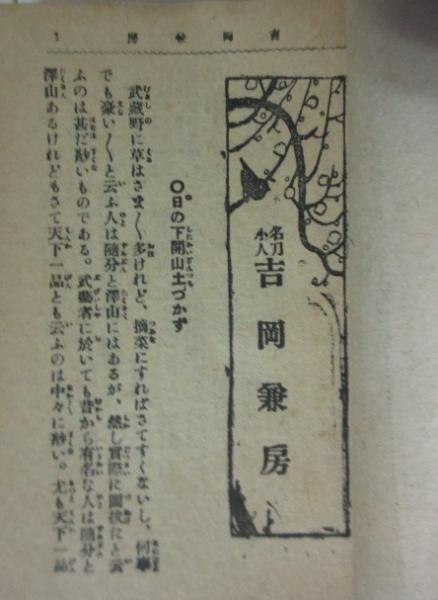 吉岡兼房 1
名刀小人 吉岡兼房
〇日の下開山土づかず
武蔵野に草はさま〴〵多けれど、摘菜にすればさてすくないし、何事
でも豪い〳〵と云ふ人は随分と澤山にはあるが、然し實際に圖抜たと云
ふのは甚だ尠いものである。武藝者に於いても昔から有名な人は随分と
澤山あるけれどもさて天下一品とも云ふのは中々に尠い。尤も天下一品